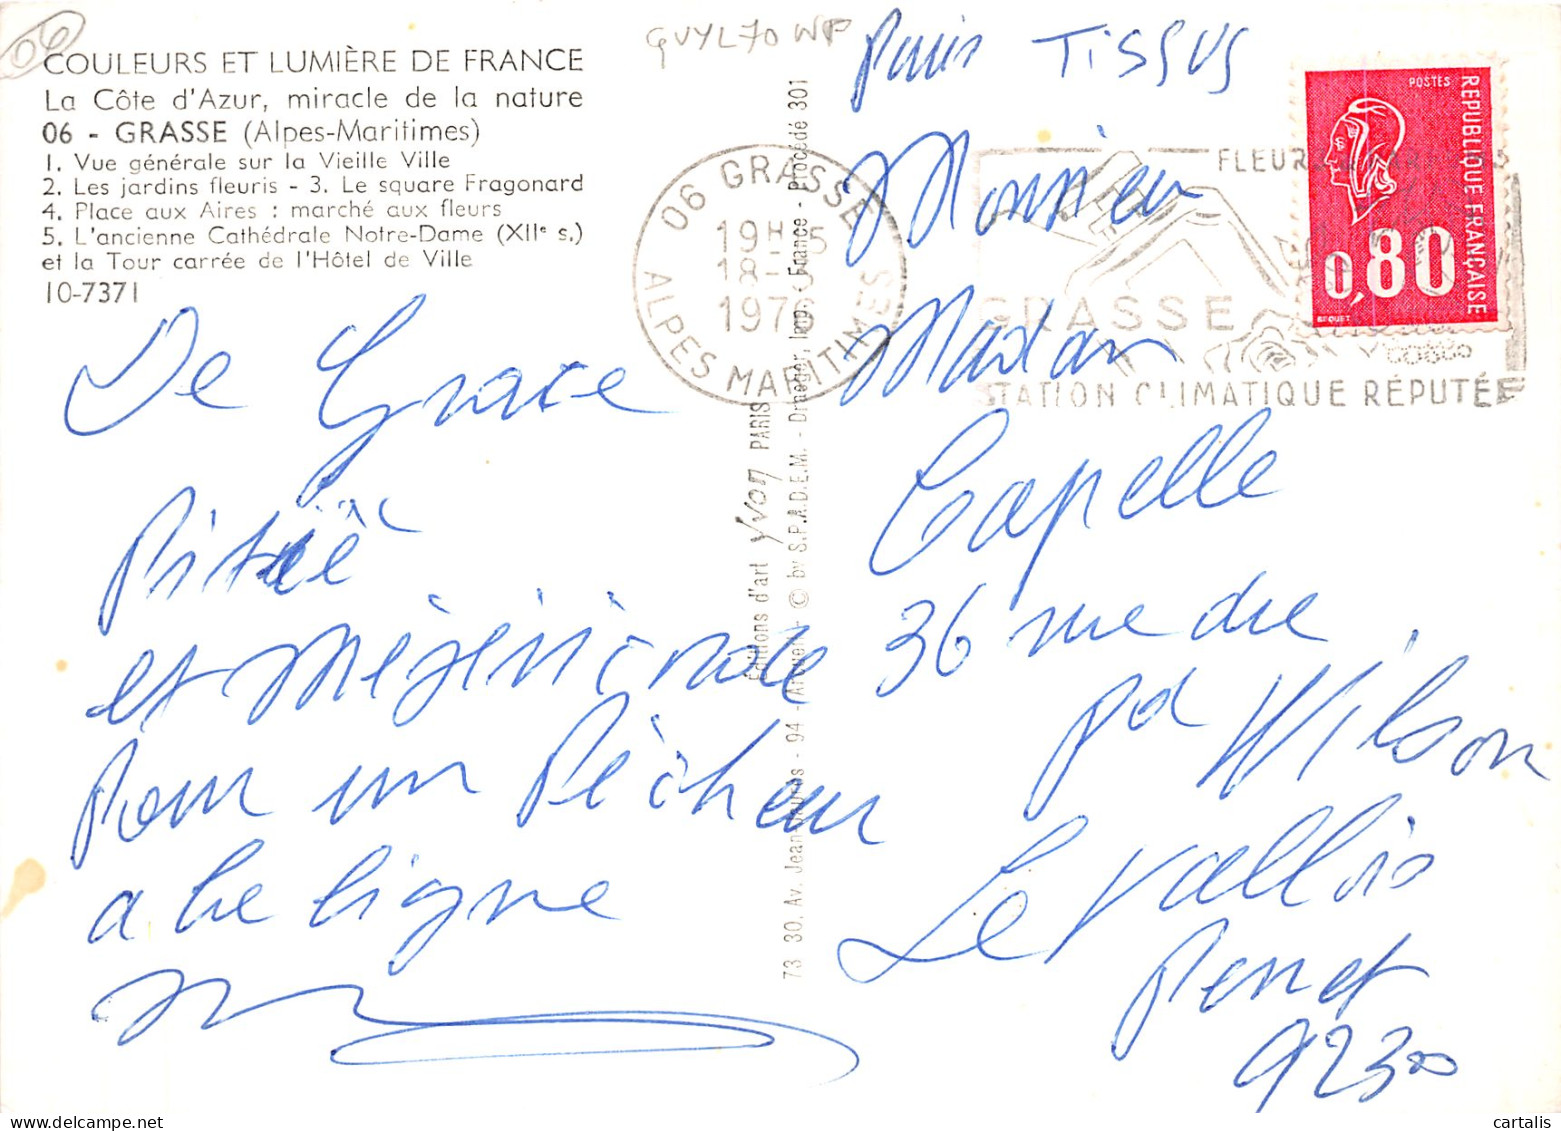 06
COULEURS ET LUMIÈRE DE FRANCE
La Côte d'Azur, miracle de la nature
06 - GRASSE (Alpes-Maritimes)
1. Vue générale sur la Vieille Ville
2. Les jardins fleuris - 3. Le square Fragonard
4. Place aux Aires : marché aux fleurs
5. L'ancienne Cathédrale Notre-Dame (XIIe s.)
et la Tour carrée de l'Hôtel de Ville
10-7371
De Grace
Pitié
et Mizéricorde
Pour un Pècheur
a la ligne
Éditions d'art Yvon PARIS
73 30. Av. Jean Jaurès - 94 - Arcueil - © by S.P.A.D.E.M. - Draeger, Imp. France - Procédé 301
06 GRASSE
19H 5
18-
1976
ALPES MARITIMES
FLEUR
GRASSE
STATION CLIMATIQUE RÉPUTÉE
POSTES
REPUBLIQUE FRANÇAISE
0,80
BEQUET
Paris TISSUS
Monsieu
Madam
Capelle
36 rue du
pd Wilson
Levallois
Perret
92300
cartalis